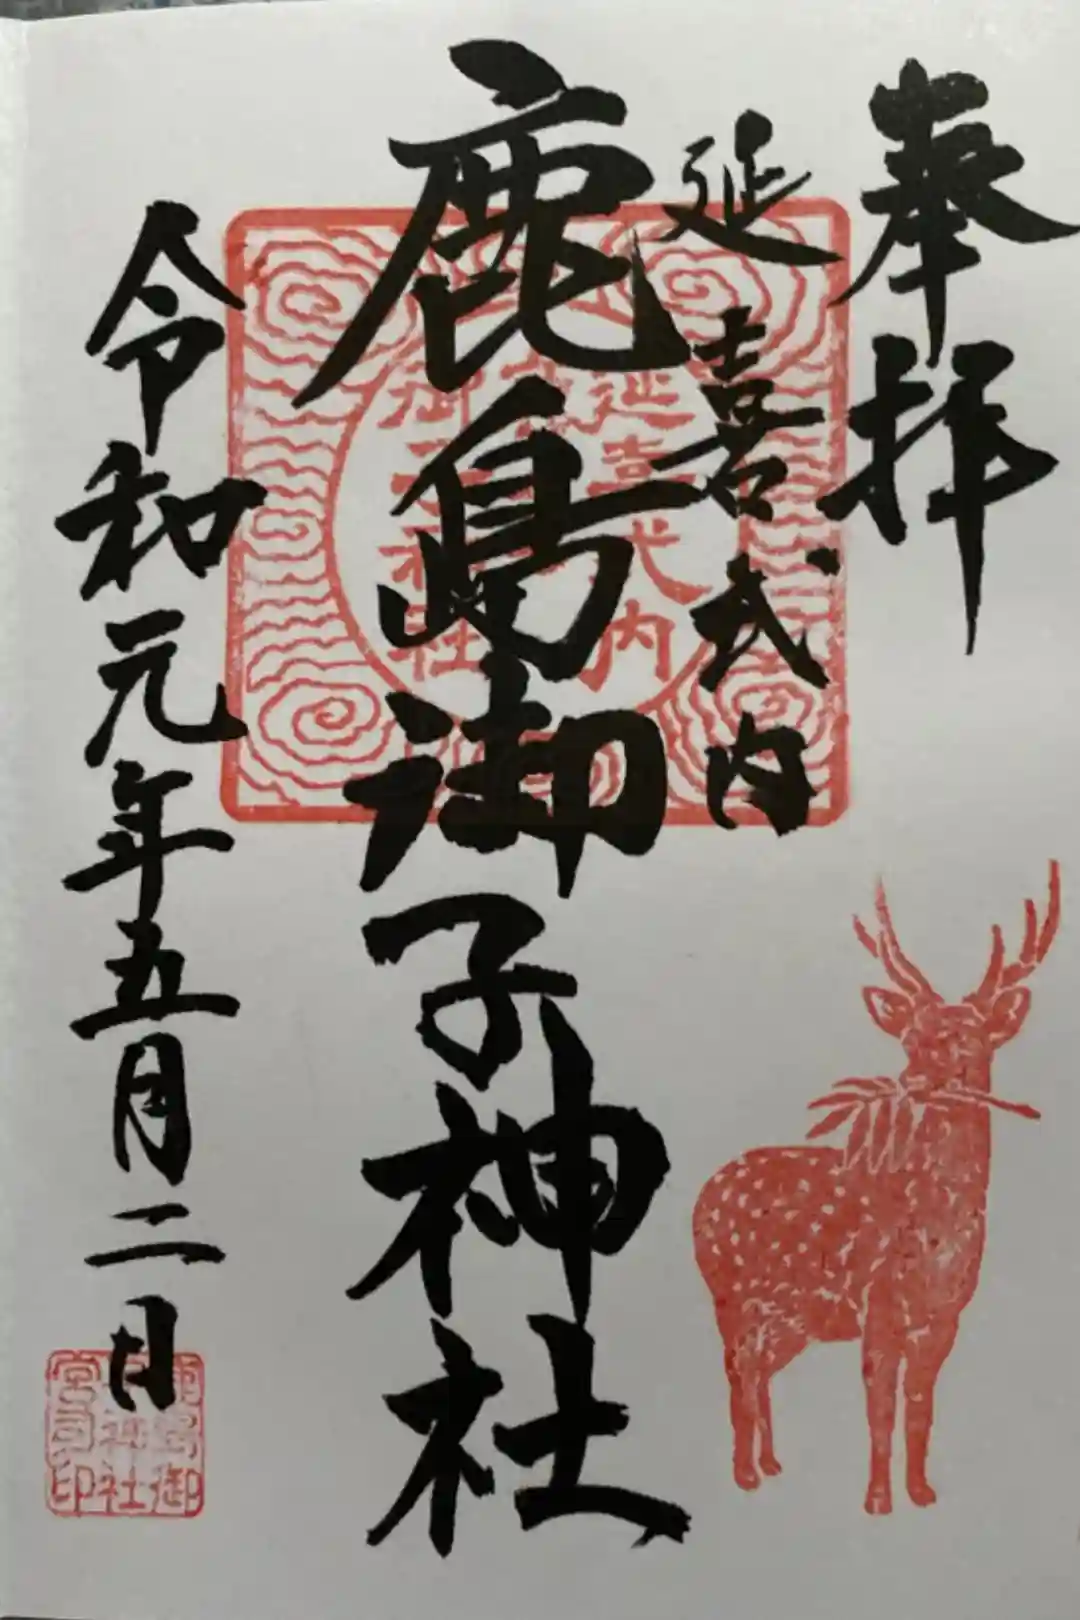 奉拝
延喜式内
鹿島御子神社
令和元年五月二日
延喜式内
鹿島御
子神社
宮司印